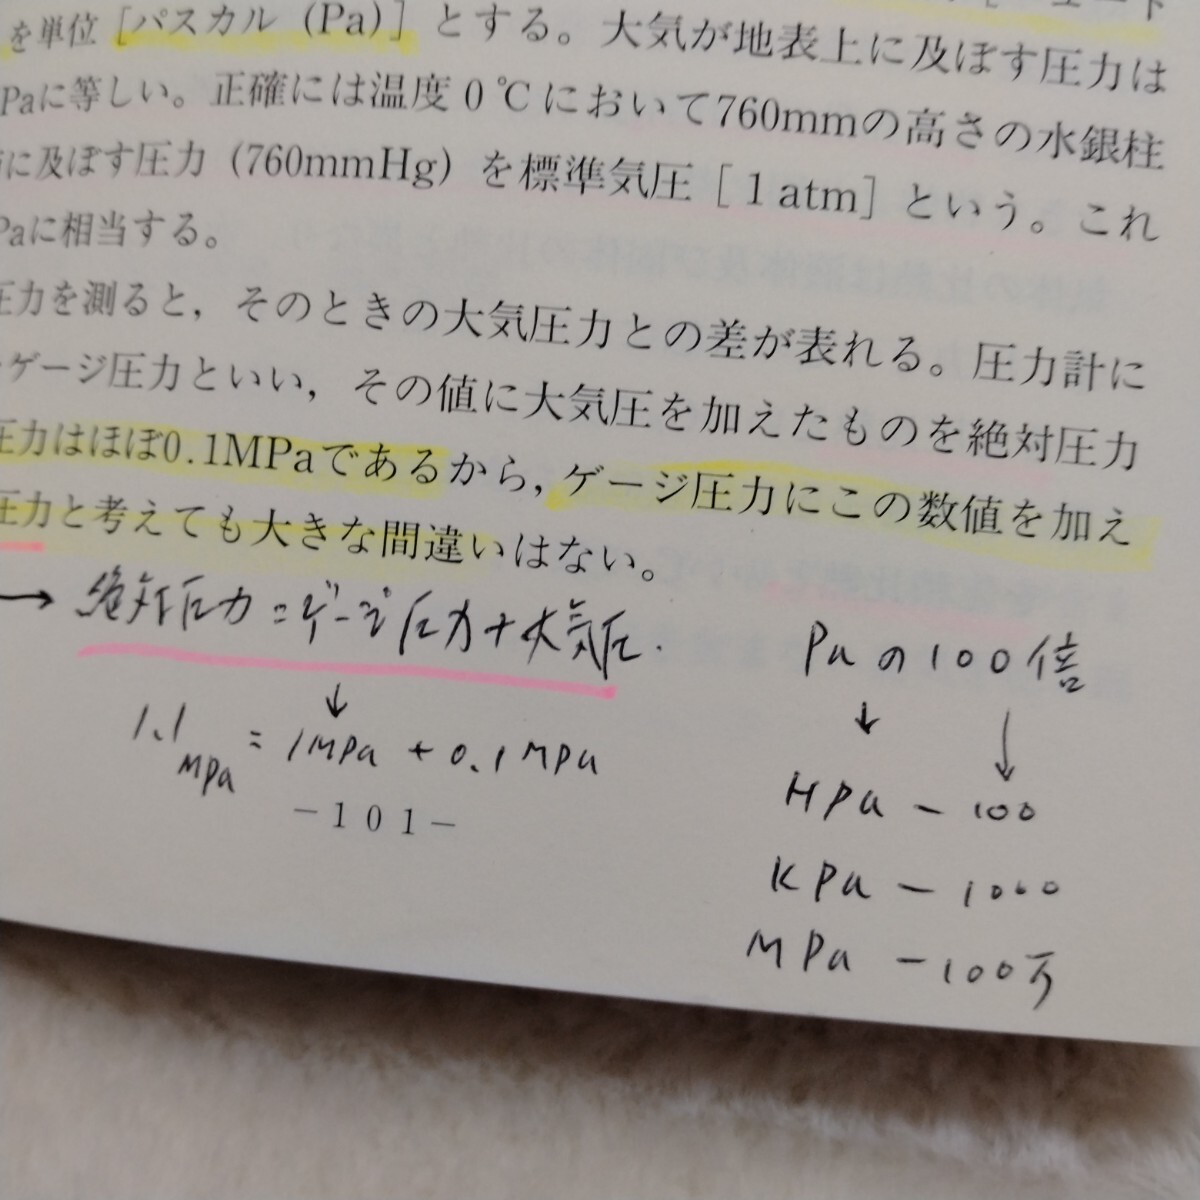 を単位[パスカル（Pa）]とする。大気が地表上に及ぼす圧力は
Paに等しい。正確には温度0℃において760mmの高さの水銀柱
に及ぼす圧力（760mmHg）を標準気圧[1atm]という。これ
Paに相当する。
圧力を測ると，そのときの大気圧力との差が表れる。圧力計に
ゲージ圧力といい，その値に大気圧を加えたものを絶対圧力
圧力はほぼ0.1MPaであるから，ゲージ圧力にこの数値を加え
圧力と考えても大きな間違いはない。
→ 絶対圧力=ゲージ圧力+大気圧.
↓
1.1MPa = 1MPa + 0.1MPa
-101-
Paの100倍
↓ ↓
HPa - 100
KPa - 1000
MPa - 100万